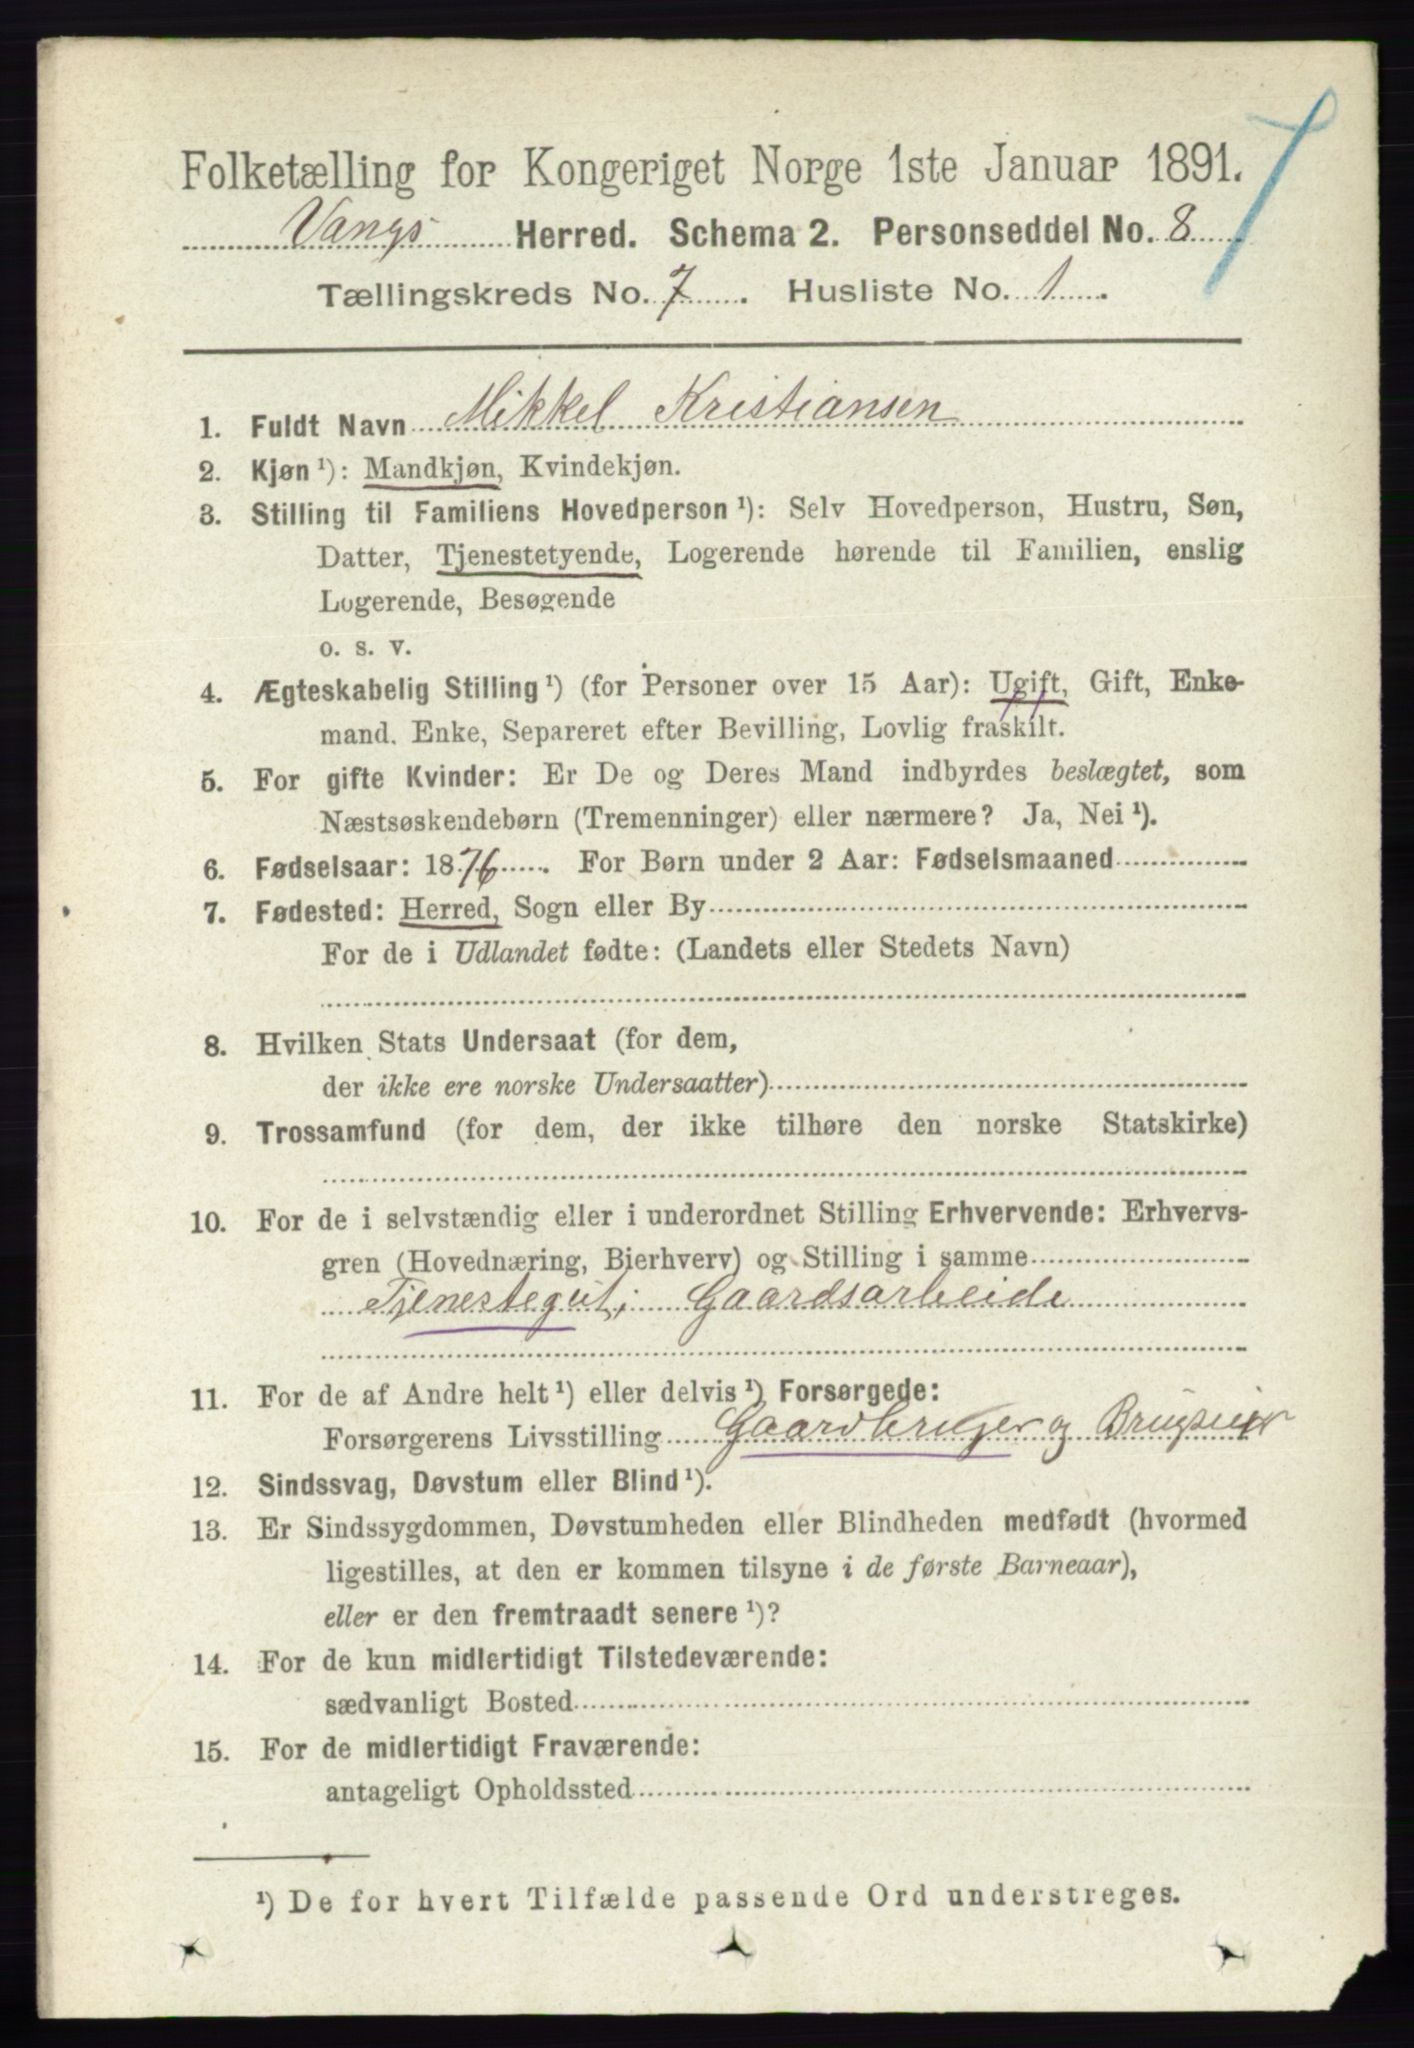 Folketælling for Kongeriget Norge 1ste Januar 1891.
Vangs Herred. Schema 2. Personseddel No. 8
Tællingskreds No. 7. Husliste No. 1.
1. Fuldt Navn Mikkel Kristiansen
2. Kjøn ¹): Mandkjøn, Kvindekjøn.
3. Stilling til Familiens Hovedperson ¹): Selv Hovedperson, Hustru, Søn,
Datter, Tjenestetyende, Logerende hørende til Familien, enslig
Logerende, Besøgende
o. s. v.
4. Ægteskabelig Stilling ¹) (for Personer over 15 Aar): Ugift, Gift, Enke-
mand. Enke, Separeret efter Bevilling, Lovlig fraskilt.
5. For gifte Kvinder: Er De og Deres Mand indbyrdes beslægtet, som
Næstsøskendebørn (Tremenninger) eller nærmere? Ja, Nei ¹).
6. Fødselsaar: 1876. For Børn under 2 Aar: Fødselsmaaned
7. Fødested: Herred, Sogn eller By
For de i Udlandet fødte: (Landets eller Stedets Navn)
8. Hvilken Stats Undersaat (for dem,
der ikke ere norske Undersaatter)
9. Trossamfund (for dem, der ikke tilhøre den norske Statskirke)
10. For de i selvstændig eller i underordnet Stilling Erhvervende: Erhvervs-
gren (Hovednæring, Bierhverv) og Stilling i samme
Tjenestegut; Gaardsarbeide
11. For de af Andre helt ¹) eller delvis ¹) Forsørgede:
Forsørgerens Livsstilling Gaardbruger og Brugseier
12. Sindssvag, Døvstum eller Blind ¹).
13. Er Sindssygdommen, Døvstumheden eller Blindheden medfødt (hvormed
ligestilles, at den er kommen tilsyne i de første Barneaar),
eller er den fremtraadt senere ¹)?
14. For de kun midlertidigt Tilstedeværende:
sædvanligt Bosted
15. For de midlertidigt Fraværende:
antageligt Opholdssted
¹) De for hvert Tilfælde passende Ord understreges.